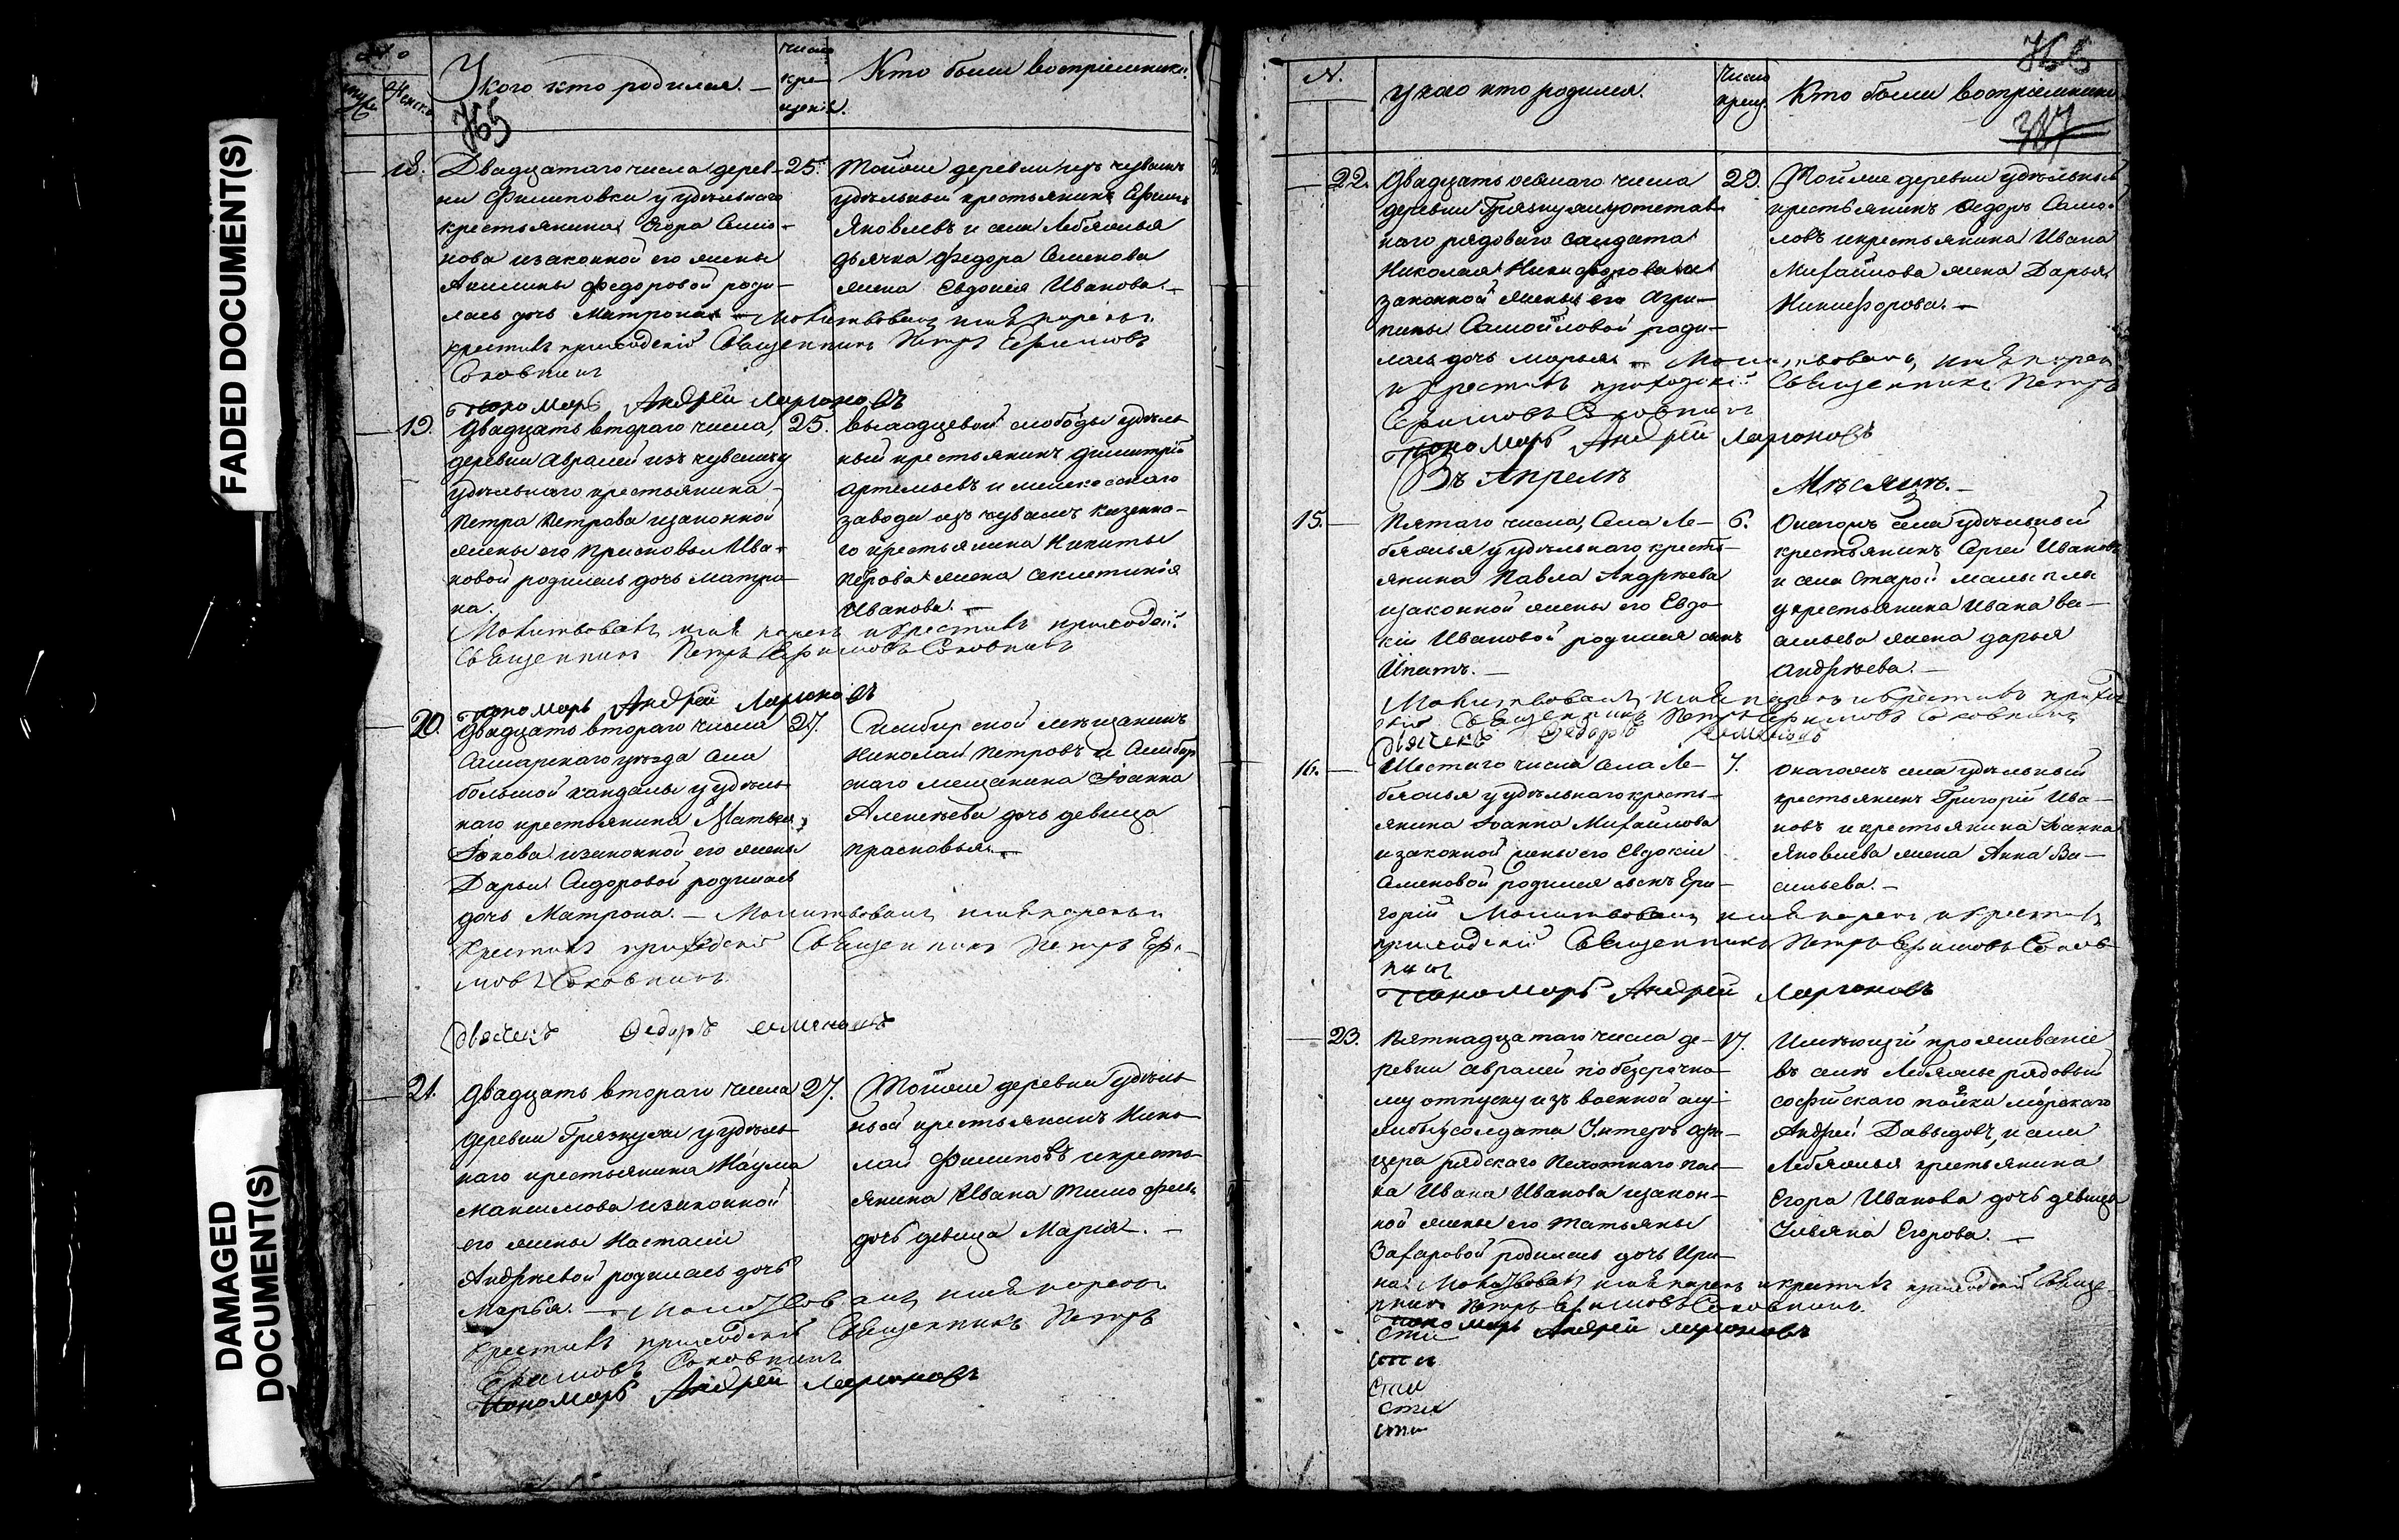 FADED DOCUMENT(S)
DAMAGED
DOCUMENT(S)
У кого кто родился. —
число
кре—
щенія.
Кто были воспріемники.
365
18. Двадцатаго числа дерев-
ни Филиповки у удѣльнаго
крестьянина Егора Семіо-
нова изаконной его жены
Акилины Федоровой роди-
лась дочь Матрона — Молитвовалъ имя нарекъ и
крестилъ приходскій Священникъ Петръ Ефимовъ
Соковнинъ
Пономарь Андрей Ларионовъ
25. Тойже деревни изъ чувашъ
удѣльный крестьянинъ Ефимъ
Яковлевъ и села Лебяжья
дьячка Федора Семенова
жена Евдокия Иванова. —
19. Двадцать втораго числа,
деревни Авралей изъ чувашъ у
удѣльнаго крестьянина
Петра Петрова изаконной
жены его Прасковьи Ива-
новой родилась дочь Матро-
на.
Молитвовалъ имя нарекъ и крестилъ приходскій
Священникъ Петръ Ефимовъ Соковнинъ
Пономарь Андрей Ларионовъ
25. слободы удѣль-
ный крестьянинъ Димитрій
Артемьевъ и мелекесскаго
завода изъ чувашъ казенна-
го крестьянина Никиты
жена
Иванова. —
20. Двадцать втораго числа
Самарскаго уѣзда села
большой кандалы у удѣль-
наго крестьянина Матвея
изаконной его жены
Дарьи Сидоровой родилась
дочь Матрона. — Молитвовалъ имя нарекъ и
крестилъ приходскій Священникъ Петръ Ефи-
мовъ Соковнинъ
Дьячекъ Федоръ Семеновъ
27. Симбирской мѣщанинъ
Николай Петровъ и Симбир
скаго мещанина Іоанна
Алексѣева дочь девица
прасковья. —
21. Двадцать втораго числа
деревни Грязнухи у удѣль-
наго крестьянина Наума
Максимова изаконной
его жены Настасіи
Андрѣевой родилась дочь
Марья. — Молитвовалъ имя нарекъ и
крестилъ приходскій Священникъ Петръ
Ефимовъ Соковнинъ
Пономарь Андрей Ларионовъ
27. Тойже деревни удѣль-
ный крестьянинъ Нико-
лай Филиповъ икресть-
янина Ивана Тимофеев
дочь девица Марія. —
N.
у кого кто родился.
число
крещ.
Кто были воспріемники
366
317
22. Двадцать осьмаго числа
деревни Грязнухи у отстав-
наго рядоваго солдата
Николая Никифорова и
законной жены его Агри-
пины Самойловой роди-
лась дочь марья — Молитвовалъ, имя нарекъ
и крестилъ приходскій Священникъ Петръ
Ефимовъ Соковнинъ
Пономарь Андрей Ларионовъ
29. Тойже деревни удѣльный
крестьянинъ Федоръ Само-
ловъ икрестьянина Ивана
Михайлова жена Дарья
Никифорова. —
Въ Апрелѣ Мѣсяцѣ. —
15. Пятаго числа, села Ле-
бяжья у удѣльнаго кресть-
янина Павла Андрѣева
изаконной жены его Евдо-
кіи Ивановой родился сынъ
Ипатъ. —
Молитвовалъ, имя нарекъ и крестилъ приход
скій Священникъ Петръ Ефимовъ Соковнинъ
Дьячекъ Федоръ Семеновъ
6. Онагожъ села удѣльный
крестьянинъ Сергей Ивановъ
и села Старой
у крестьянина Ивана Ва-
сильева жена дарья
Андрѣева. —
16. Шестаго числа села Ле-
бяжья у удѣльнаго кресть-
янина Іоанна Михайлова
изаконной жены его Евдокіи
Семеновой родился сынъ Гри-
горій Молитвовалъ, имя нарекъ и крестилъ
приходскій Священникъ Петръ Ефимовъ Соков-
нинъ
Пономарь Андрей Ларионовъ
7. онагожъ села удѣльный
крестьянинъ Григорій Ива-
новъ и крестьянина Іоанна
Яковлева жена Анна Ва-
сильева. —
23. Пятнадцатаго числа де-
ревни авралей по безсрочно-
му отпуску изъ военной слу-
жбы у солдата Унтеръ офи-
цера рядскаго Пехотнаго пол-
ка Ивана Иванова изакон-
ной жены его Татьяны
Захаровой родилась дочь Ири-
на. Молитвовалъ имя нарекъ и крестилъ приходскій Священ-
никъ Петръ Ефимовъ Соковнинъ.
Пономарь Андрей Ларионовъ
17. Имѣющій проживаніе
въ селѣ Лебяжье рядовый
софійскаго полка морскаго
Андрей Давыдовъ, и села
Лебяжья крестьянина
Егора Иванова дочь девица
Ульяна Егорова. —